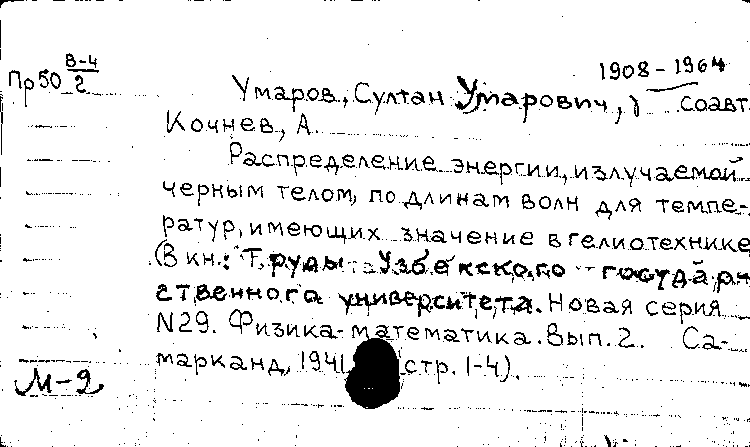 Пр50 В-4/2
1908-1964
Умаров, Султан Умарович, соавт.
Кочнев, А.
Распределение энергии, излучаемой
черным телом, по длинам волн для темпе-
ратур, имеющих значение в гелиотехнике
(В кн.: Труды Узбекского государ
ственного университета. Новая серия
N29. Физика-математика. Вып. 2. Са-
марканд, 1941 стр. 1-4).
М-2